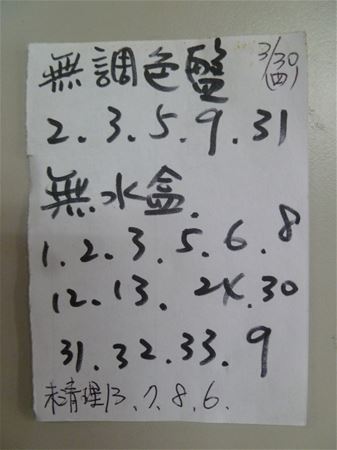 無調色盤
3/30
(四)
2.3.5.9.31
無水盒.
1.2.3.5.6.8
12.13.24.30
31.32.33.9
未清理13.7.8.6.